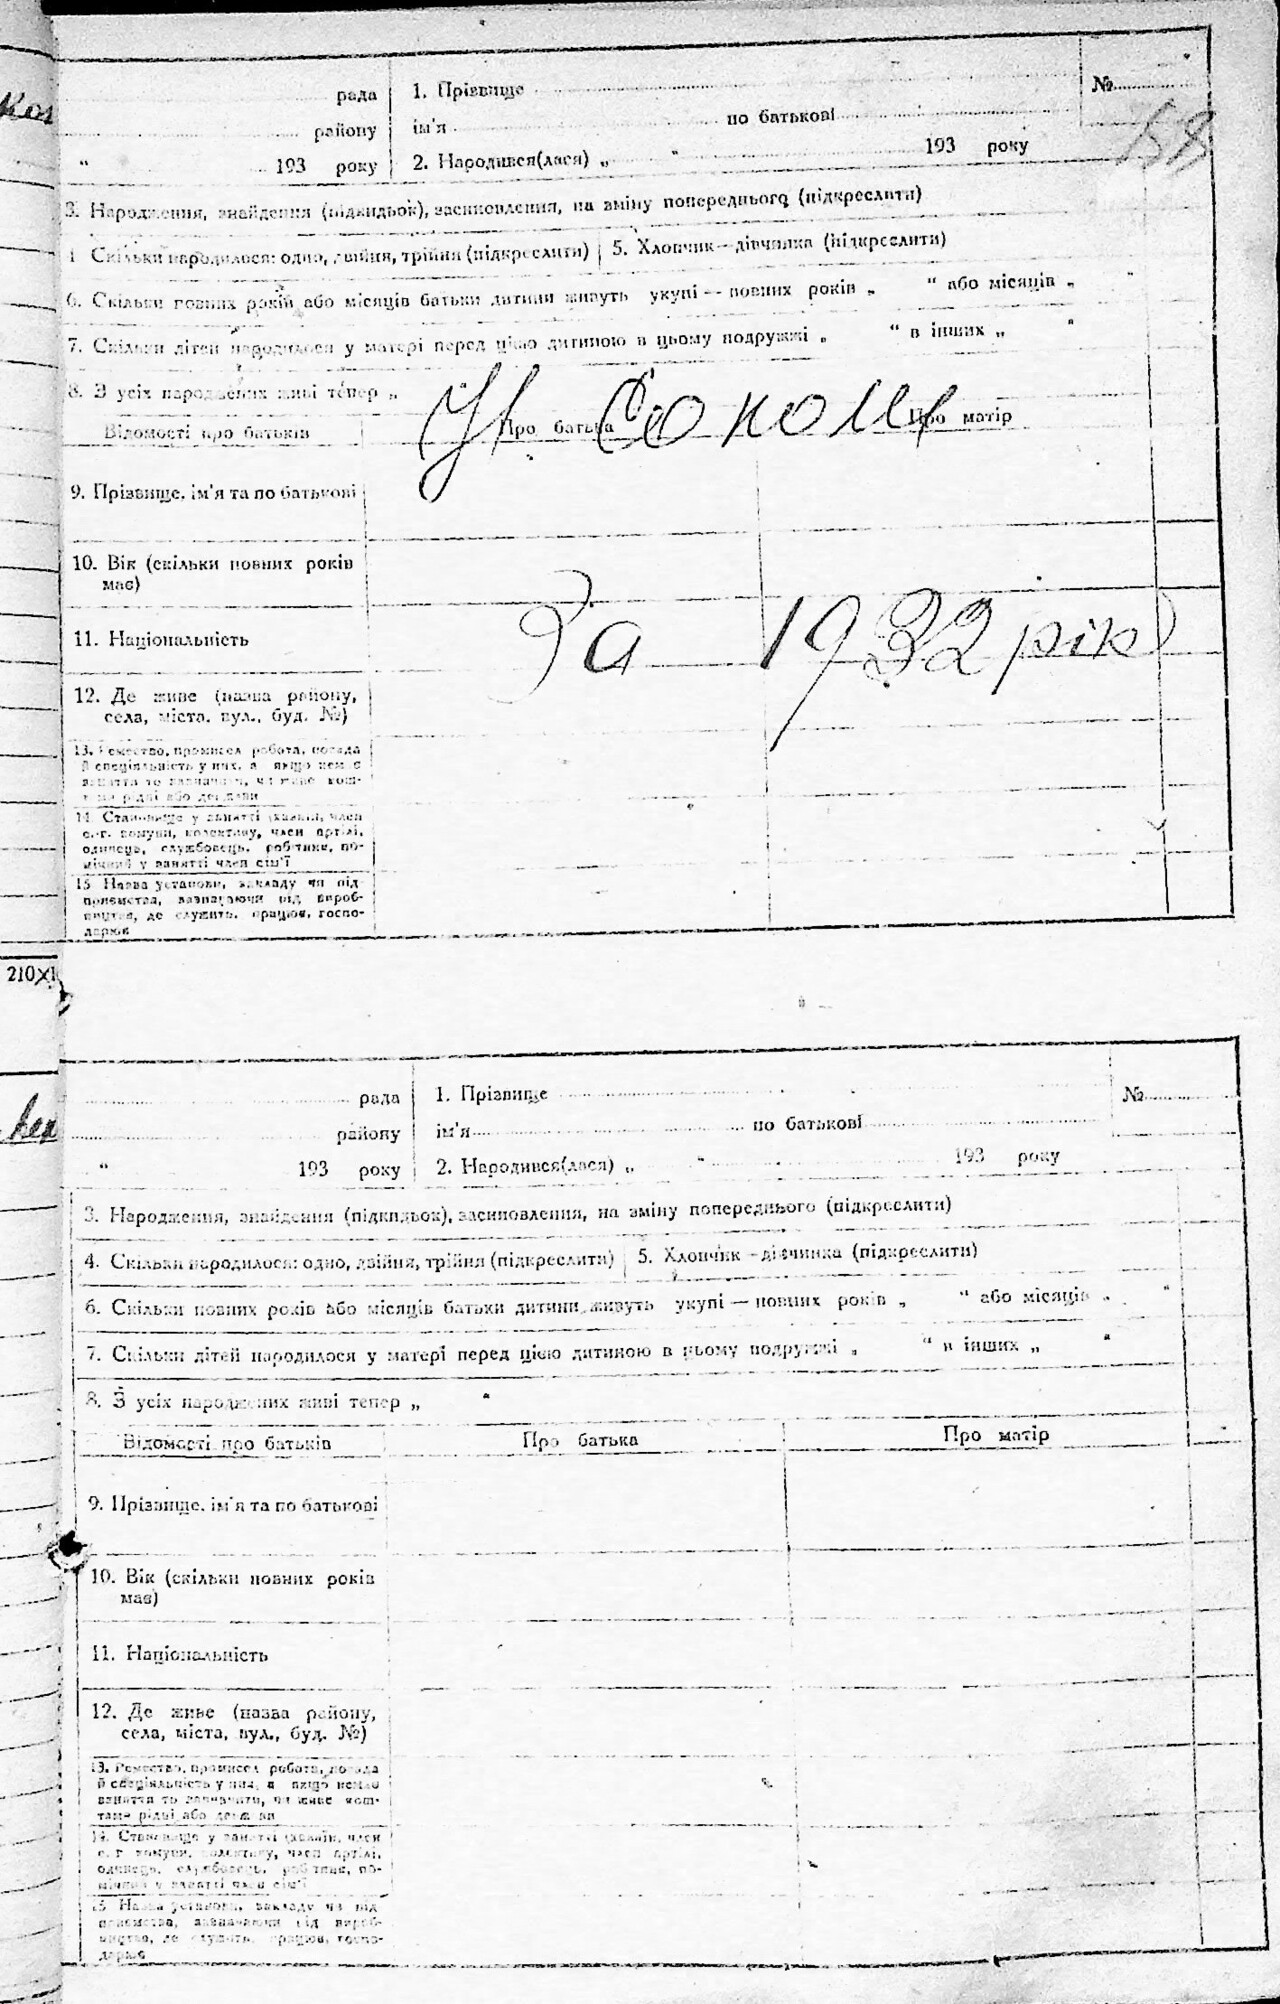 рада
району
" 193 року
1. Прізвище
ім'я по батькові
2. Народився(лася) „ " 193 року
№
3. Народження, знайдення (підкидьок), засиновлення, на зміну попереднього (підкреслити)
Скільки народилося: одно, двійня, трійня (підкреслити) 5. Хлопчик—дівчинка (підкреслити)
6. Скільки повних років або місяців батьки дитини живуть укупі — повних років „ " або місяців „ "
7. Скільки дітей народилося у матері перед цією дитиною в цьому подружжі „ " в інших „ "
8. З усіх народжених живі тепер „
Відомості про батьків Про батька Про матір
9. Прізвище, ім'я та по батькові
10. Вік (скільки повних років
має)
За 1932 рік
11. Національність
12. Де живе (назва району,
села, міста, вул., буд. №)
13. Ремество, промисел робота, посада
й спеціальність у них, а якщо немає
заняття то зазначити, чи живе кош-
тами рідні або держави
14. Становище у занятті (хазяїн, член
с.-г. комуни, колективу, член артілі,
одинець, службовець, робітник, по-
мічний у занятті член сім'ї
15 Назва установи, закладу чи під
приємства, зазначаючи рід вироб-
ництва, де служить, працює, госпо-
дарює
210×
рада
району
" 193 року
1. Прізвище
ім'я по батькові
2. Народився(лася) „ " 193 року
№
3. Народження, знайдення (підкидьок), засиновлення, на зміну попереднього (підкреслити)
4. Скільки народилося: одно, двійня, трійня (підкреслити) 5. Хлопчик—дівчинка (підкреслити)
6. Скільки повних років або місяців батьки дитини живуть укупі — повних років „ " або місяців „ "
7. Скільки дітей народилося у матері перед цією дитиною в цьому подружжі „ " в інших „ "
8. З усіх народжених живі тепер „ "
Відомості про батьків Про батька Про матір
9. Прізвище, ім'я та по батькові
10. Вік (скільки повних років
має)
11. Національність
12. Де живе (назва району,
села, міста, вул., буд. №)
13. Ремество, промисел робота, посада
й спеціальність у них, а якщо немає
заняття то зазначити, чи живе кош-
тами рідні або держави
14. Становище у занятті (хазяїн, член
с. г. комуни, колективу, член артілі,
одинець, службовець, робітник, по-
мічний у занятті член сім'ї
15 Назва установи, закладу чи під
приємства, зазначаючи рід вироб-
ництва, де служить, працює, госпо-
дарює